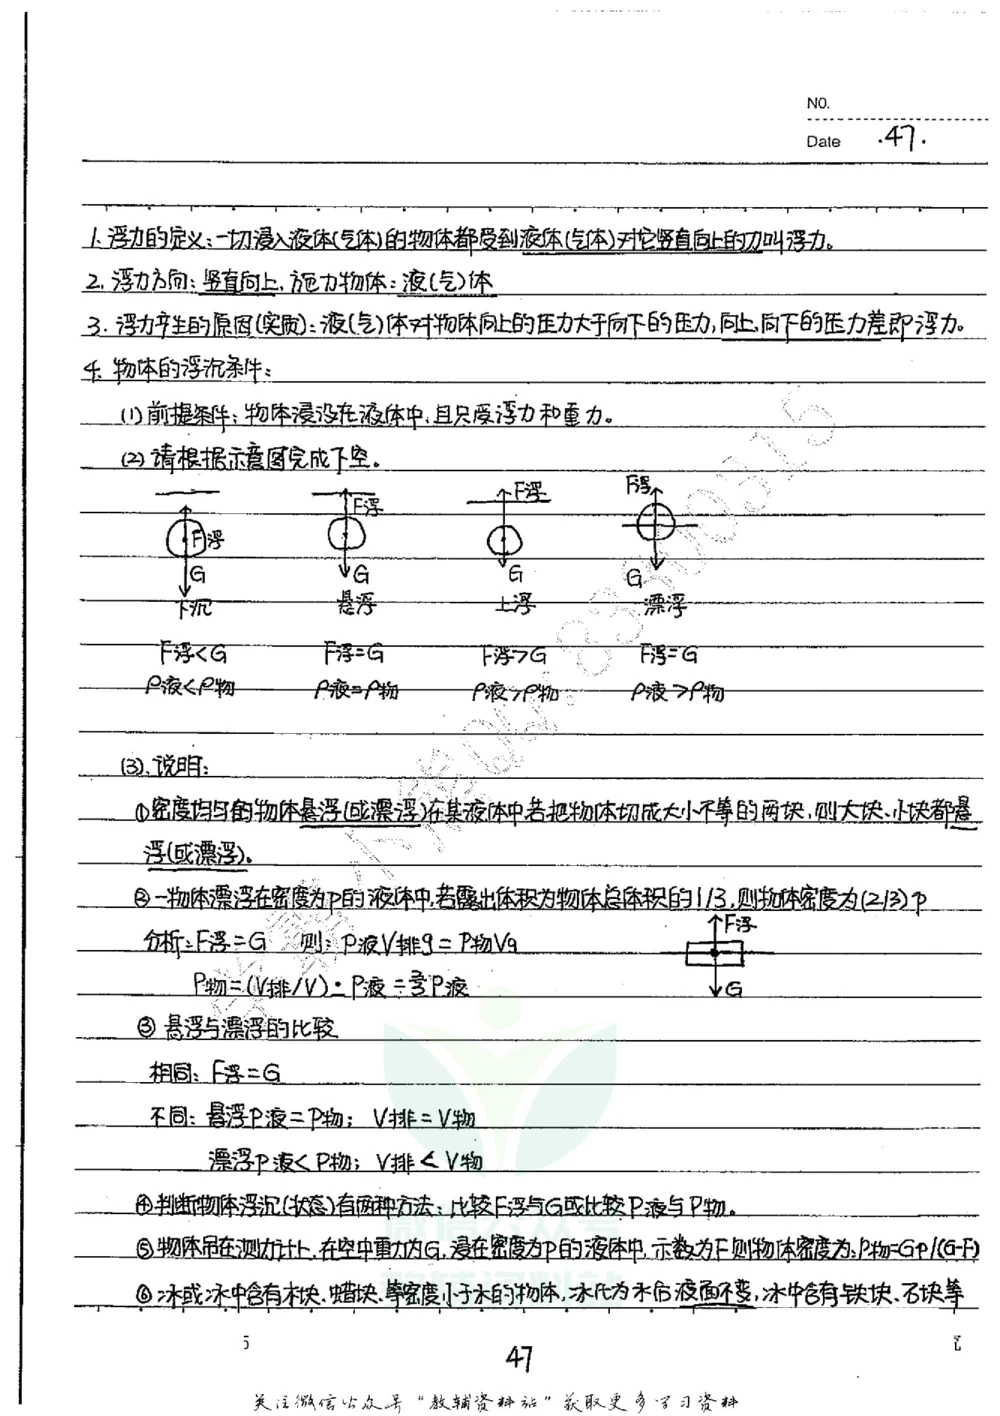 NO.
Date .47.
1. 浮力的定义:一切浸入液体(气体)的物体都受到液体(气体)对它竖直向上的力叫浮力。
2. 浮力方向:竖直向上,施力物体:液(气)体
3. 浮力产生的原因(实质):液(气)体对物体向上的压力大于向下的压力,向上、向下的压力差即浮力。
4. 物体的浮沉条件:
(1)前提条件:物体浸没在液体中,且只受浮力和重力。
(2)请根据示意图完成下空。
F浮 F浮 F浮 F浮
G G G G
下沉 悬浮 上浮 漂浮
F浮<G F浮=G F浮>G F浮=G
ρ液<ρ物 ρ液=ρ物 ρ液>ρ物 ρ液>ρ物
(3).说明:
①密度均匀的物体悬浮(或漂浮)在某液体中若把物体切成大小不等的两块,则大块、小块都悬
浮(或漂浮)。
②一物体漂浮在密度为ρ的液体中,若露出体积为物体总体积的1/3,则物体密度为(2/3)ρ
F浮
分析:F浮=G 则:ρ液V排g=ρ物Vg
ρ物=(V排/V)·ρ液=⅔ρ液
G
③悬浮与漂浮的比较
相同:F浮=G
不同:悬浮ρ液=ρ物;V排=V物
漂浮ρ液<ρ物;V排<V物
④判断物体浮沉(状态)有两种方法:比较F浮与G或比较ρ液与ρ物。
⑤物体吊在测力计上,在空中重力为G,浸在密度为ρ的液体中,示数为F则物体密度为:ρ物=Gρ/(G-F)
⑥冰或冰中含有木块、蜡块、等密度小于水的物体,冰化为水后液面不变,冰中含有铁块、石块等
5
47
关注微信公众号“教辅资料站”获取更多学习资料
微信公众号
教辅资料站